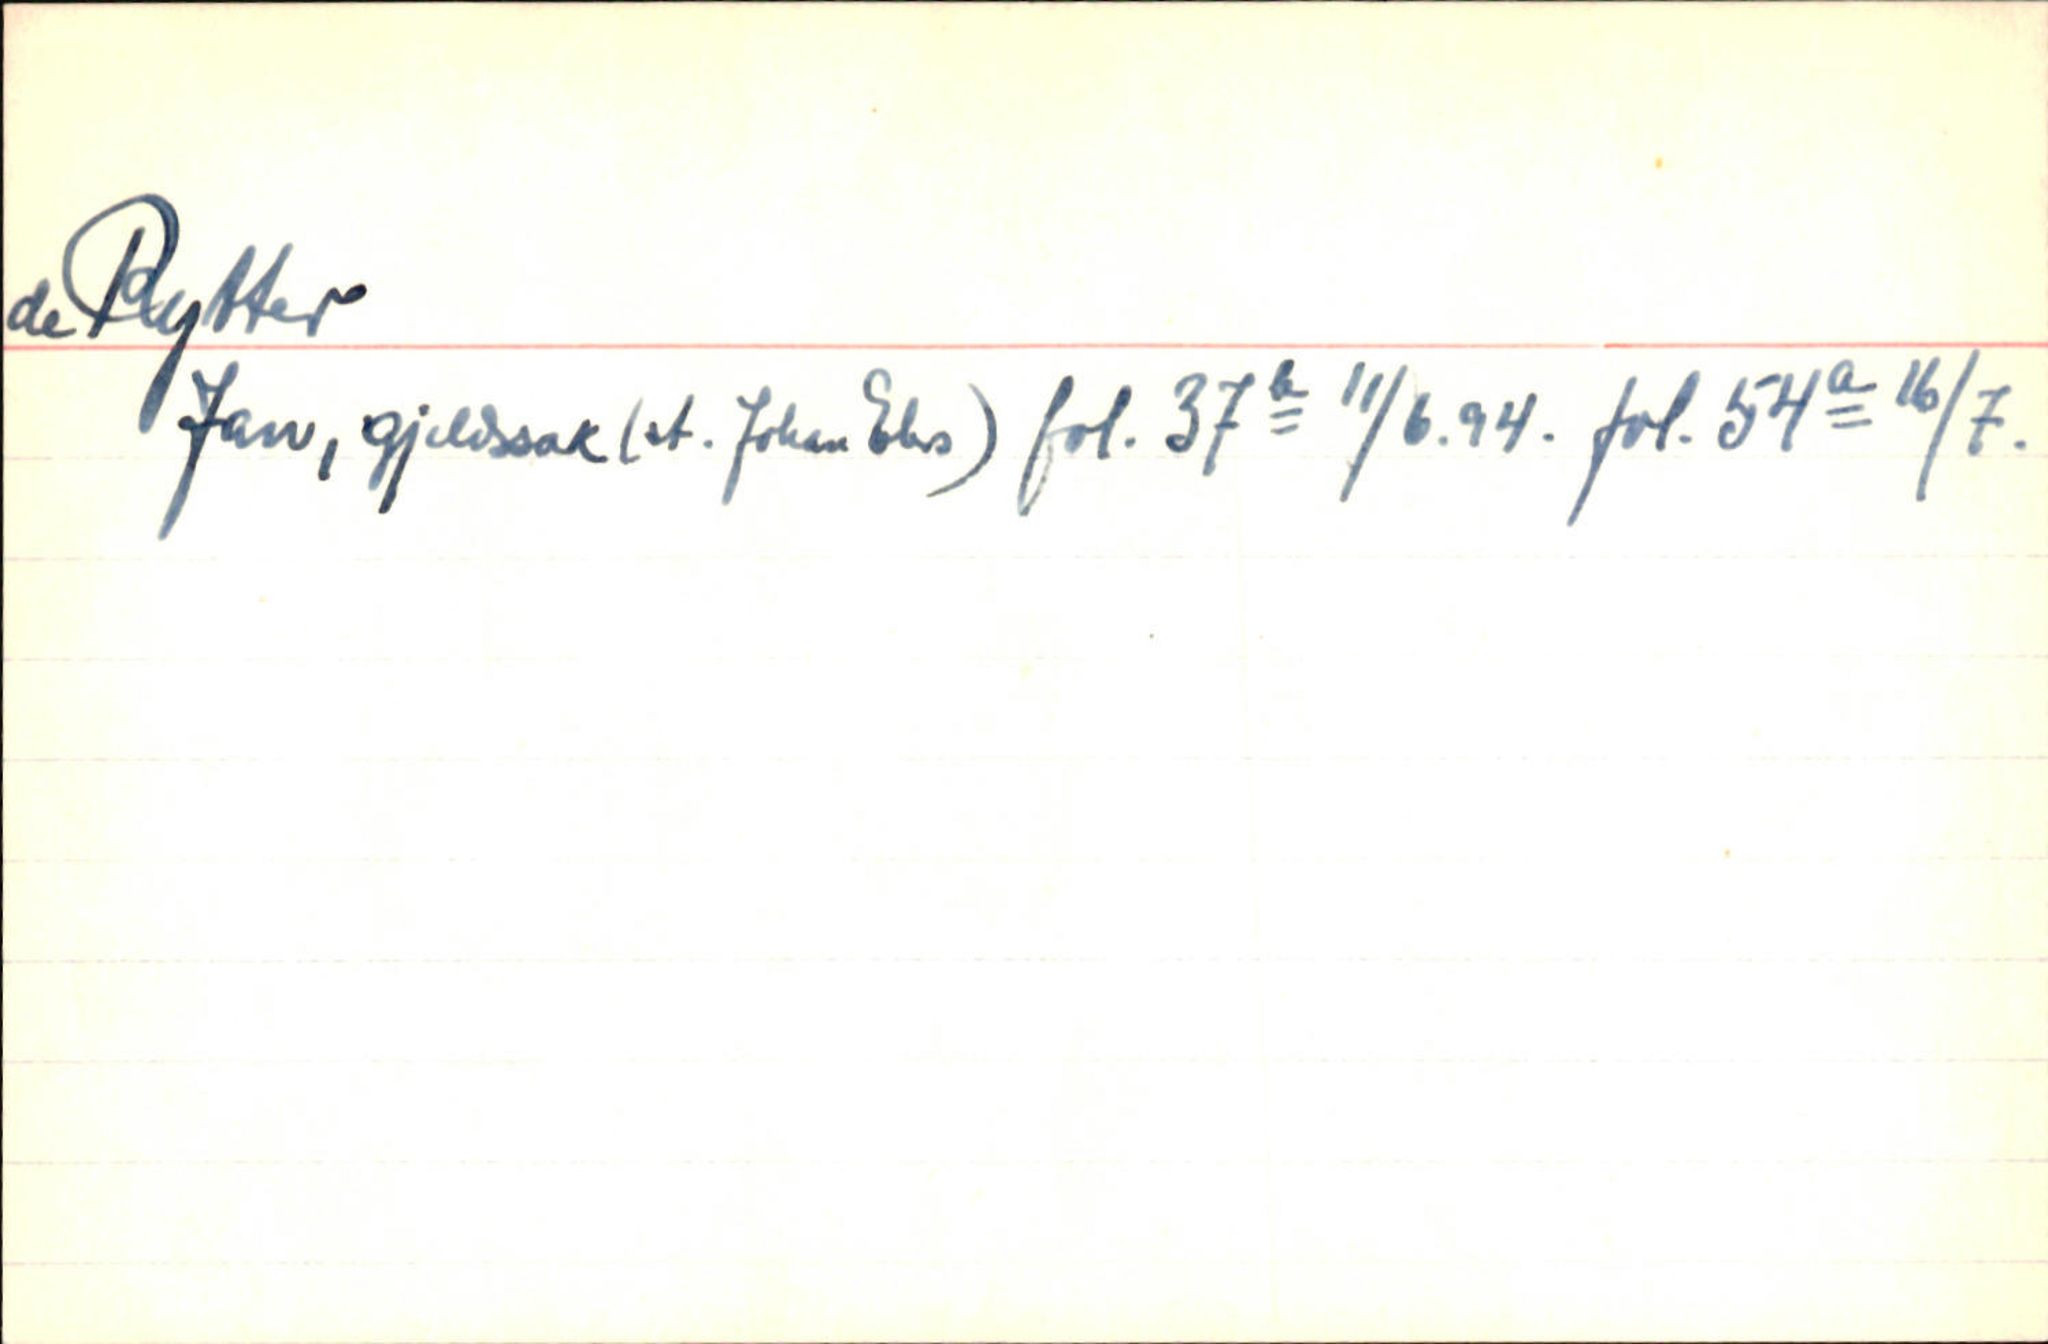 de Rytter
Jan, gjeldssak (st. Johan Ehrs) fol. 37b 11/6.94. fol. 54a 16/7.